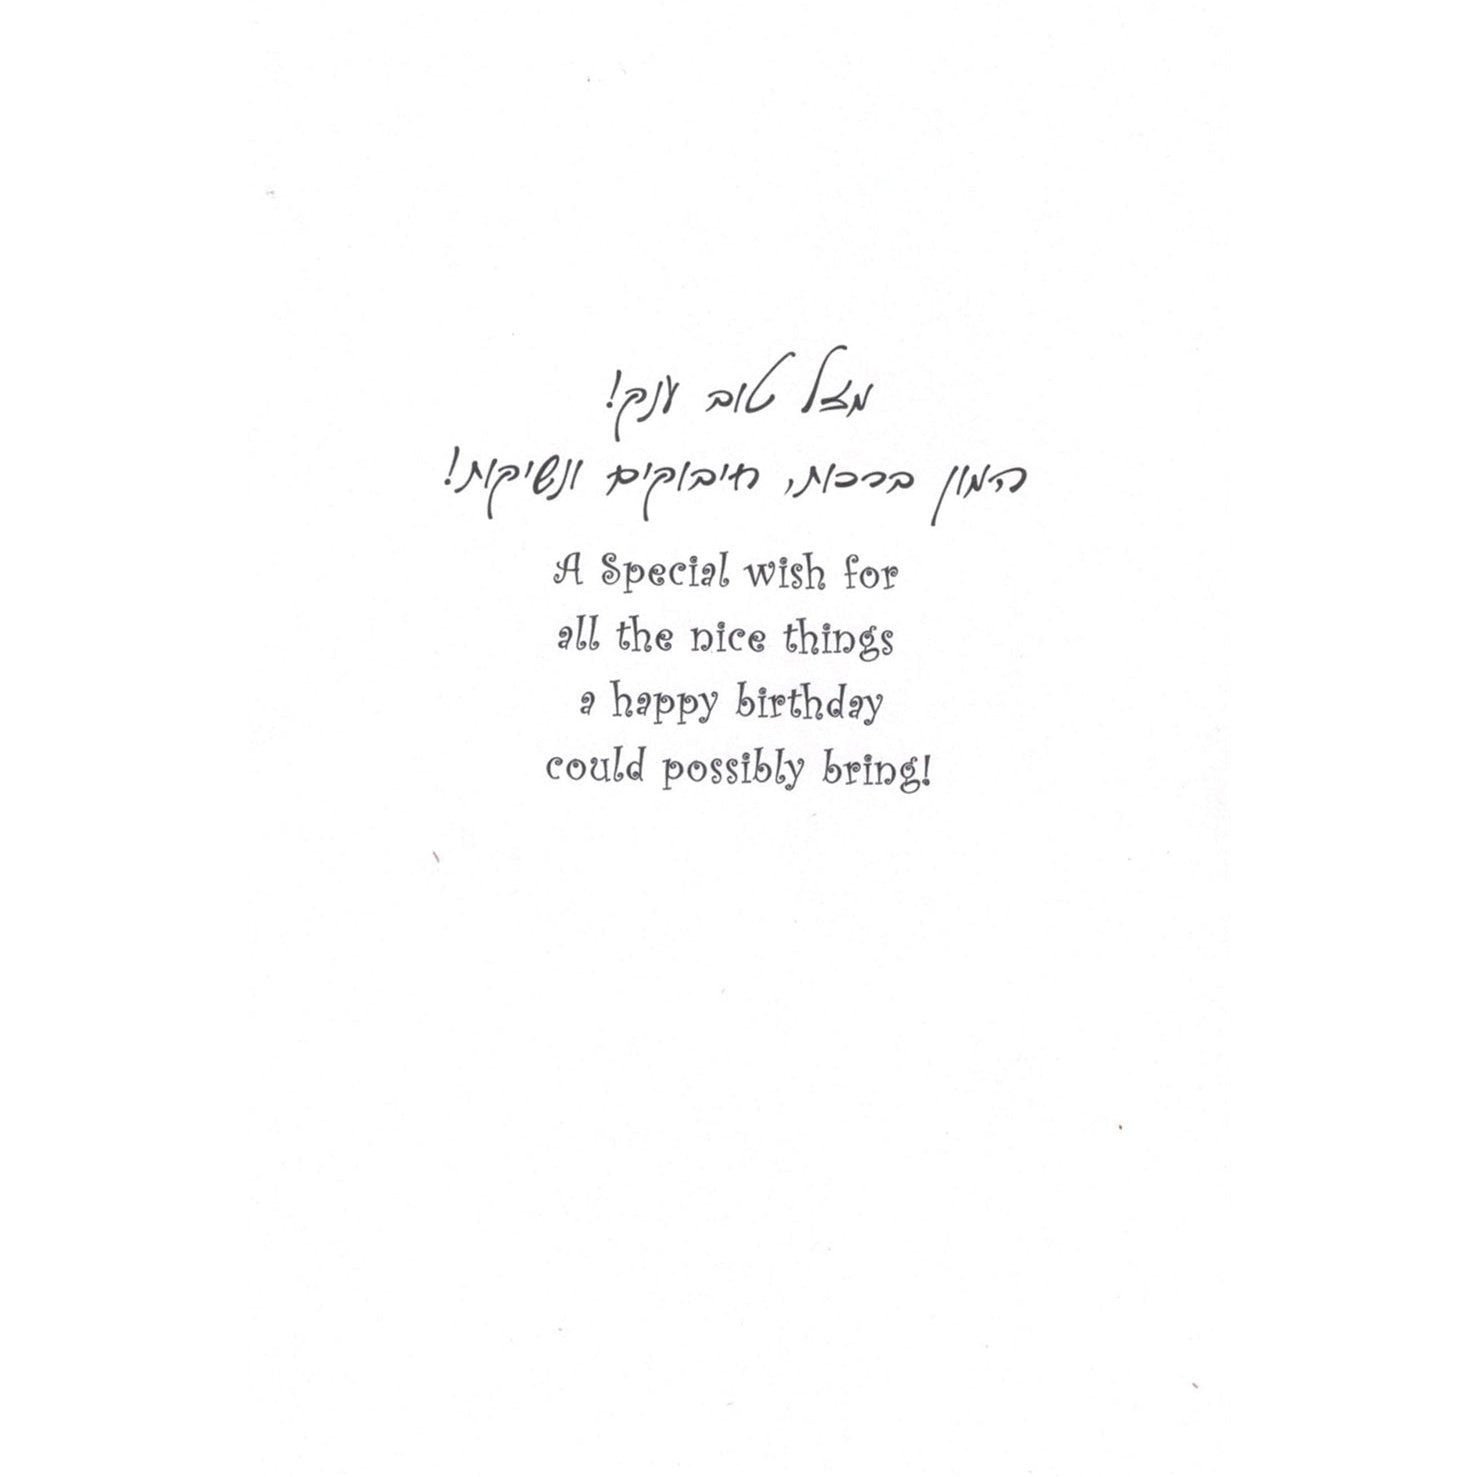 מזל טוב ענק!
המון ברכות, חיבוקים ונשיקות!
A Special wish for
all the nice things
a happy birthday
could possibly bring!